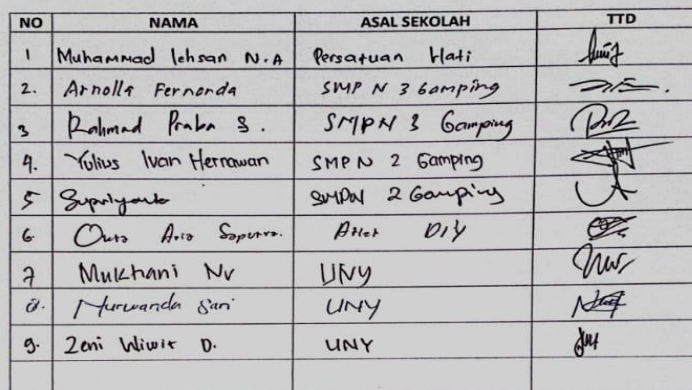 NO NAMA ASAL SEKOLAH TTD
1 Muhammad Ichsan N.A Persatuan Hati
2. Arnolla Fernanda SMP N 3 Gamping
3 Rahmad Praba S. SMPN 3 Gamping
4. Yulius Ivan Hernawan SMP N 2 Gamping
5 Supriyanto SMPN 2 Gamping
6. Aria Saputra. Atlet DIY
7 Mukhani Nv UNY
8. Nurwanda Sari UNY
9. Zeni Wiwit D. UNY